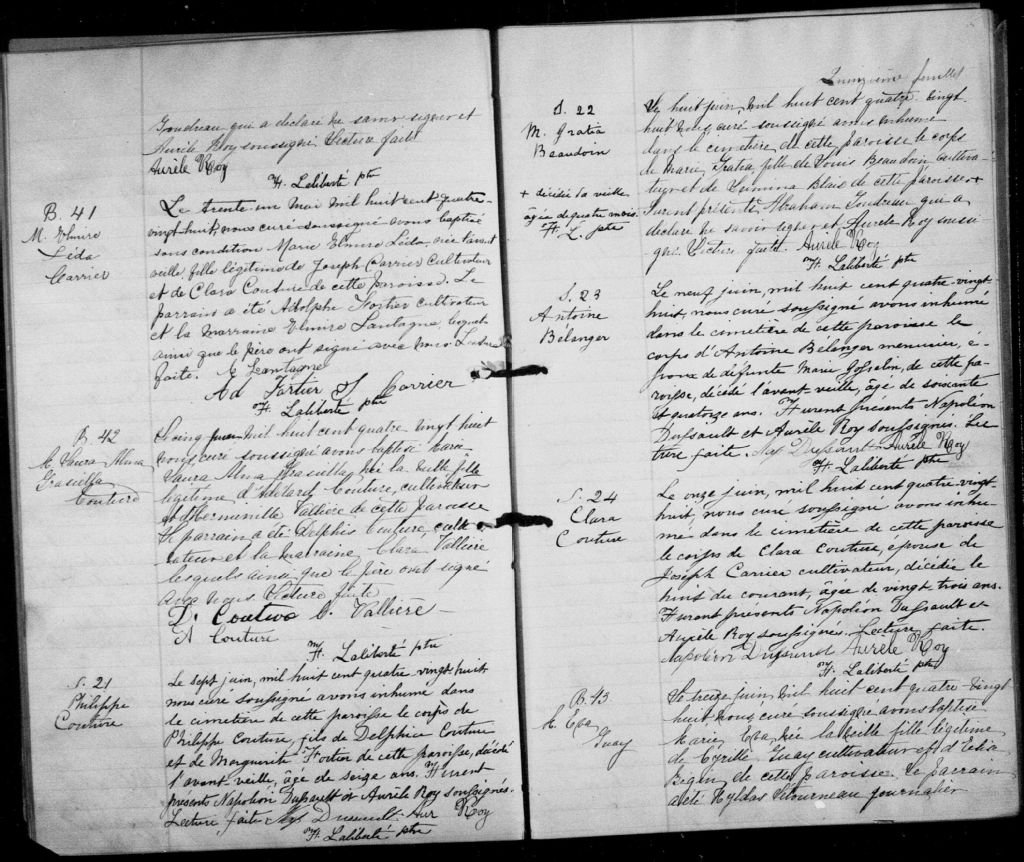 Goudreau qui a déclaré ne savoir signer et
Aurèle Roy soussigné. Lecture faite
Aurèle Roy
H. Laliberté ptre
B. 41
M. Elmire
Léda
Carrier
Le trente-un mai mil huit cent quatre-
vingt-huit, nous curé soussigné avons baptisé
sous condition Marie Elmire Léda, née l'avant
veille, fille légitime de Joseph Carrier cultivateur
et de Clara Couture de cette paroisse. Le
parrain a été Adolphe Fortier cultivateur
et la marraine Elmire Lantagne, lesquels
ainsi que le père ont signé avec nous. Lecture
faite. E Lantagne
Ad Fortier J. Carrier
H. Laliberté ptre
B. 42
M. Laura Alma
Graziella
Couture
Le cinq juin mil huit cent quatre vingt huit
nous, curé soussigné avons baptisé Marie
Laura Alma Graziella, née la veille fille
légitime d'Adélard Couture, cultivateur
et d'Herménille Vallière de cette paroisse
Le parrain a été Delphis Couture, culti-
vateur et la marraine Clara Vallière
lesquels ainsi que le père ont signé
avec nous. Lecture faite
D. Couture C. Vallière
A Couture
H. Laliberté ptre
S. 21
Philippe
Couture
Le sept juin, mil huit cent quatre-vingt-huit
nous curé soussigné avons inhumé dans
le cimetière de cette paroisse le corps de
Philippe Couture, fils de Delphice Couture
et de Marguerite Fortier de cette paroisse, décédé
l'avant-veille, âgé de seize ans. Furent
présents Napoléon Dussault et Aurèle Roy soussignés.
Lecture faite. Nap Dussault Aur Roy
H. Laliberté ptre
Quinzième feuillet
S. 22
M. Gratia
Beaudoin
+ décédée la veille
âgée de quatre mois.
H. L. ptre
Le huit juin, mil huit cent quatre-vingt
huit nous curé soussigné avons inhumé
dans le cimetière de cette paroisse le corps
de Marie Gratia, fille de Louis Beaudoin cultiva-
teur et de Blais de cette paroisse +
Furent présents Abraham Goudreau qui a
déclaré ne savoir signer et Aurèle Roy sous-
gné. Lecture faite. Aurèle Roy
H. Laliberté ptre
S. 23
Antoine
Bélanger
Le neuf juin, mil huit cent quatre-vingt-
huit, nous curé soussigné avons inhumé
dans le cimetière de cette paroisse le
corps d'Antoine Bélanger menuisier, é-
poux de défunte Marie Gosselin, de cette pa-
roisse, décédé l'avant-veille, âgé de soixante
et quatorze ans. Furent présents Napoléon
Dussault et Aurèle Roy soussignés. Lec
ture faite. Nap Dussault Aurèle Roy
H. Laliberté ptre
S. 24
Clara
Couture
Le onze juin, mil huit cent quatre-vingt-
huit, nous curé soussigné avons inhu-
mé dans le cimetière de cette paroisse
le corps de Clara Couture, épouse de
Joseph Carrier cultivateur, décédée le
huit du courant, âgée de vingt-trois ans.
Furent présents Napoléon Dussault et
Aurèle Roy soussignés. Lecture faite.
Napoléon Dussault Aurèle Roy
H. Laliberté ptre
B. 43
M. Eva
Guay
Le treize juin, mil huit cent quatre vingt
huit nous, curé soussigné avons baptisé
Marie, Eva, née la veille fille légitime
de Cyrille Guay cultivateur et d'
Bégin de cette paroisse. Le parrain
a été Letourneau journalier